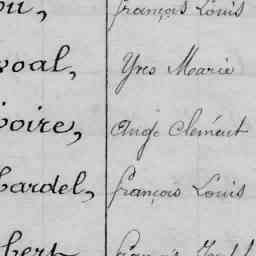 ou, François Louis
voal, Yves Marie
boire, Ange Clément
bardel, François Louis
bert